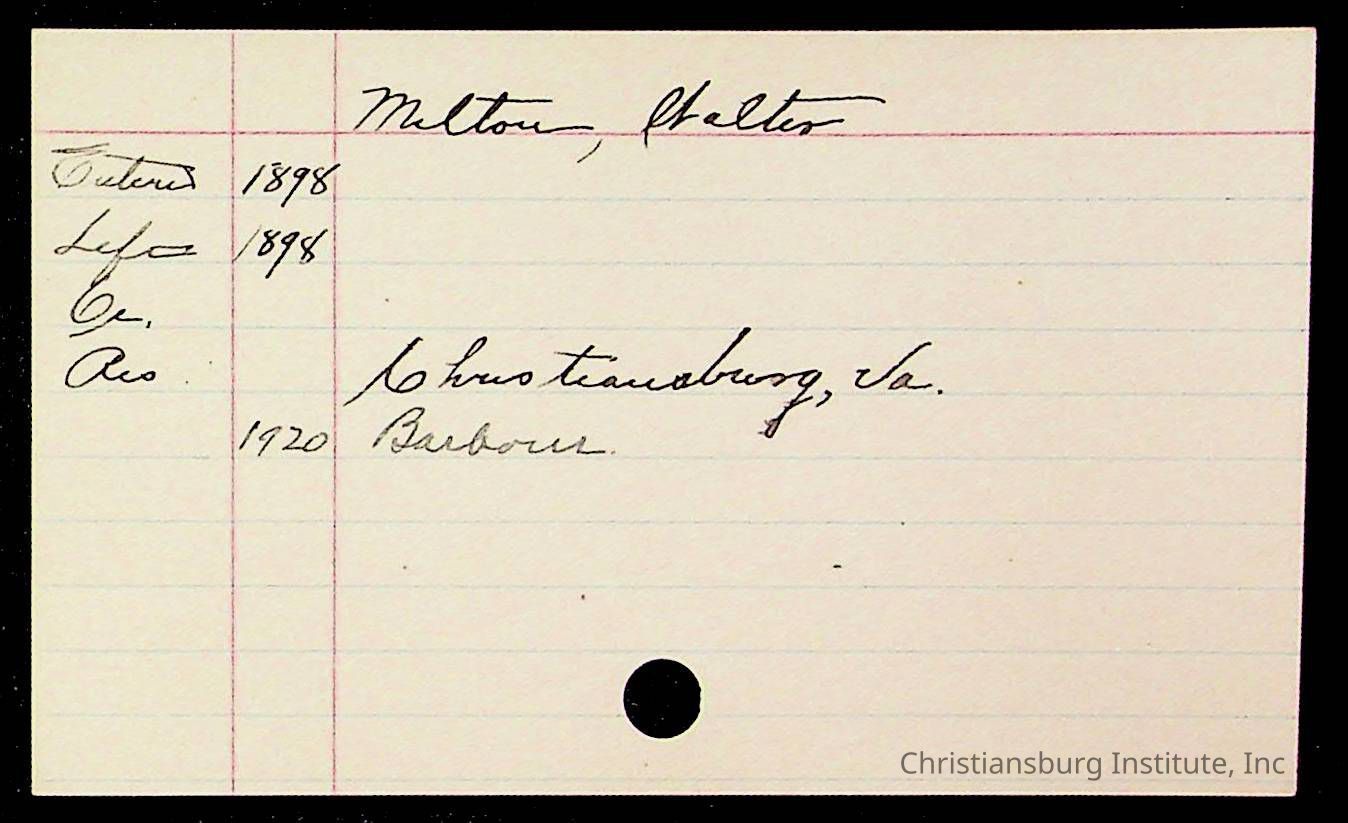 Milton, Walter
Entered 1898
Left 1898
Cr.
Res. Christiansburg, Va.
1920 Barbour.
Christiansburg Institute, Inc